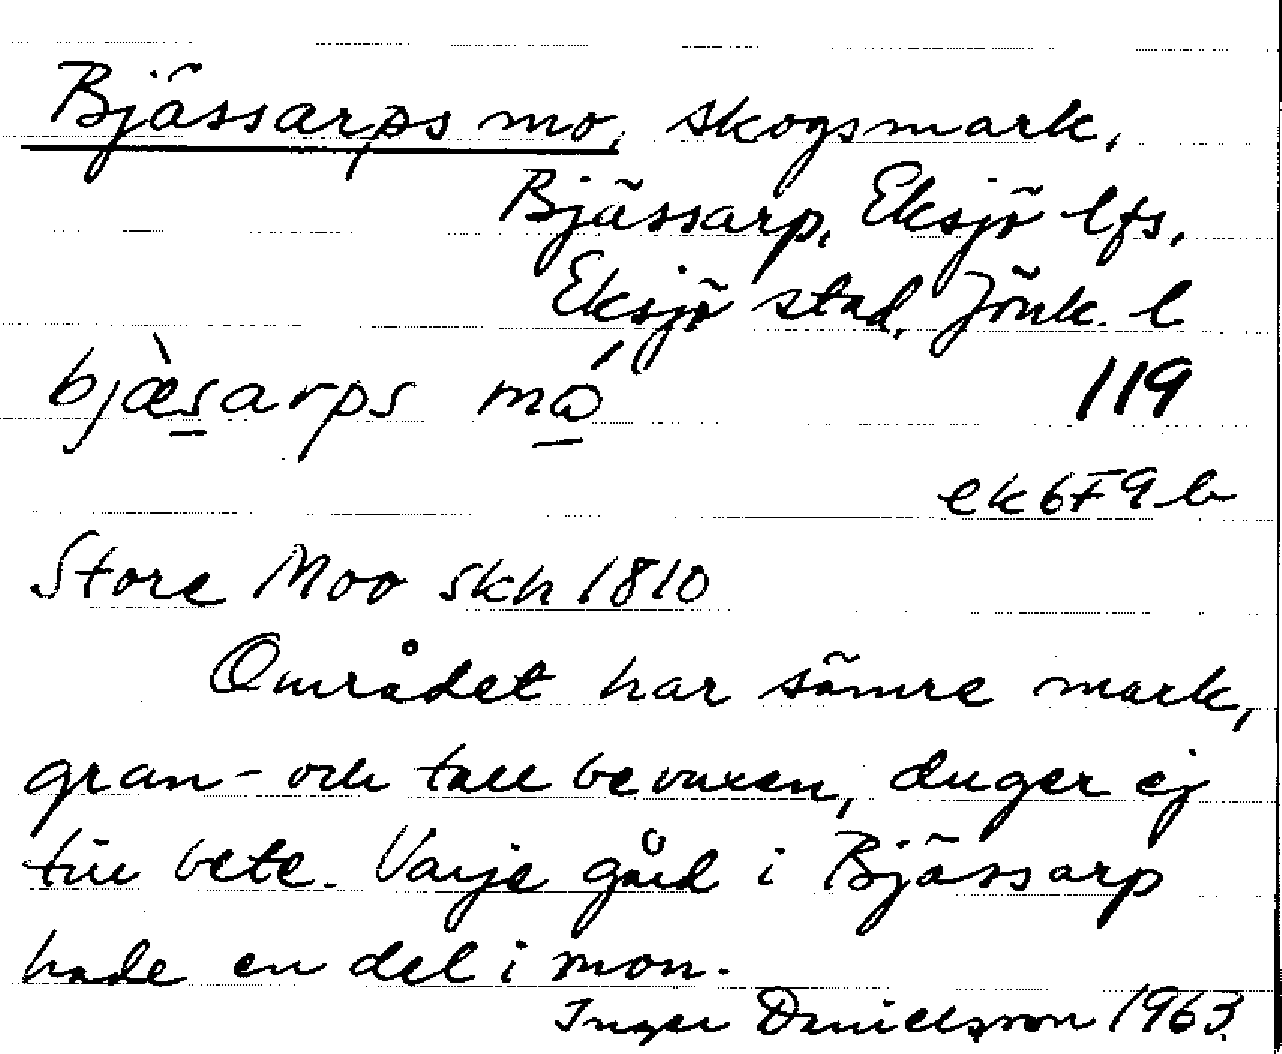 Bjässarps mo, skogsmark,
Bjässarp, Eksjö lfs,
Eksjö stad, Jönk. l
bjæ̀sarps mó 119
ek 6F9b
Store Moo skh 1810
Området har sämre mark,
gran- och tall bevuxen, duger ej
till bete. Varje gård i Bjässarp
hade en del i mon.
Inger Danielsson 1963.